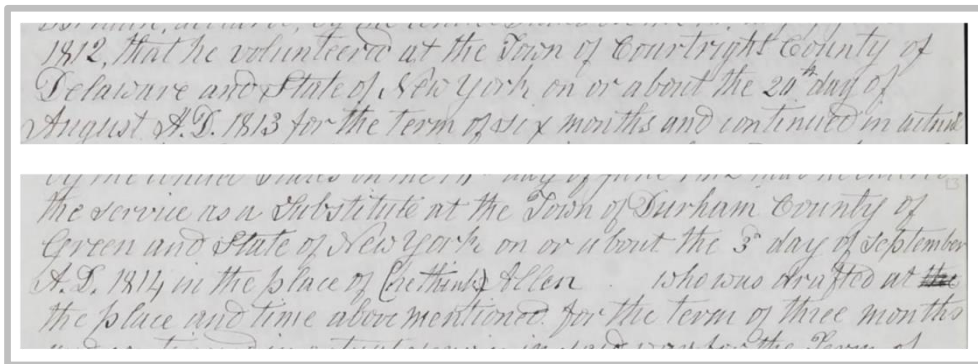 1812, that he volunteered at the Town of Courtright County of
Delaware and State of New York on or about the 20th day of
August A.D. 1813 for the term of six months and continued in actual
the service as a Substitute at the Town of Durham County of
Green and State of New York on or about the 3d day of September
A.D. 1814 in the place of (he thinks) Allen who was drafted at the
the place and time above mentioned for the term of three months